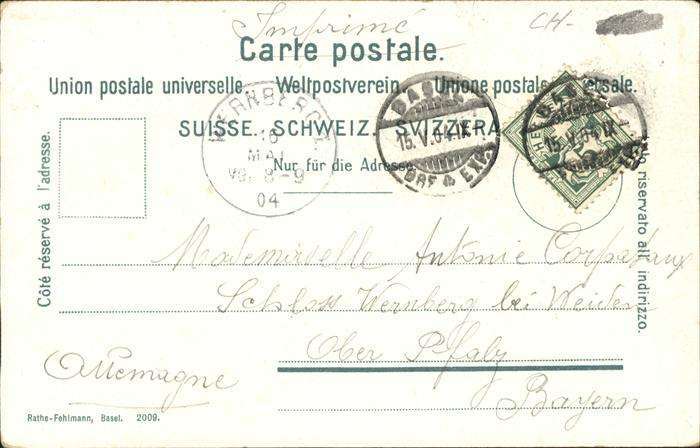 Imprimé CH-
Carte postale.
Union postale universelle. Weltpostverein. Unione postale
SUISSE. SCHWEIZ. SVIZZERA.
Nur für die Adresse.
Côté réservé à l'adresse.
riservato all' indirizzo.
WERNBERG
16
MAI
VO. 8-9
04
BASEL
15.V.04.IX
BRF & EXP.
HELV
15.V.04.IX
Mademoiselle Antonie
Schloss Wernberg bei Weiden
Ober Pfalz
Allemagne
Bayern
Rathe-Fehlmann, Basel. 2009.